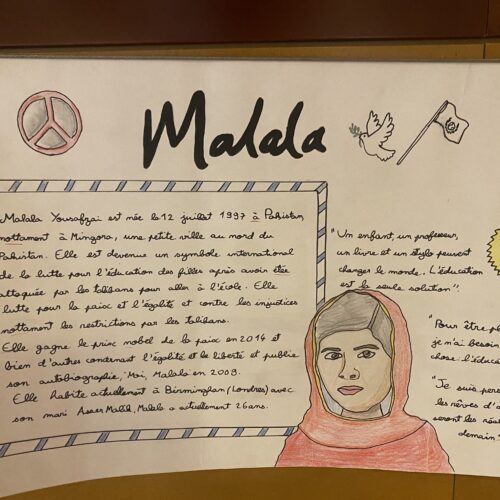 Malala
Malala Yousafzai est née le 12 juillet 1997 à Pakistan,
nottament à Mingora, une petite ville au nord du
Pakistan. Elle est devenue un symbole international
de la lutte pour l'éducation des filles après avoir étée
attaquée par les talibans pour aller à l'école. Elle
lutte pour la paix et l'égalité et contre les injustices
nottament les restrictions par les talibans.
Elle gagne le prix nobel de la paix en 2014 et
bien d'autres concernant l'égalité et la liberté et publie
son autobiographie, "Moi, Malala en 2009.
Elle habite actuellement à Birmingham (Londres) avec
son mari Asser Malik, Malala a actuellement 26 ans.
"Un enfant, un professeur,
un livre et un stylo peuvent
changer le monde. L'éducation
est la seule solution".
"Pour être
je n'ai besoin
chose: l'éduca
"Je suis
les rêves d'
seront les réal
demain."